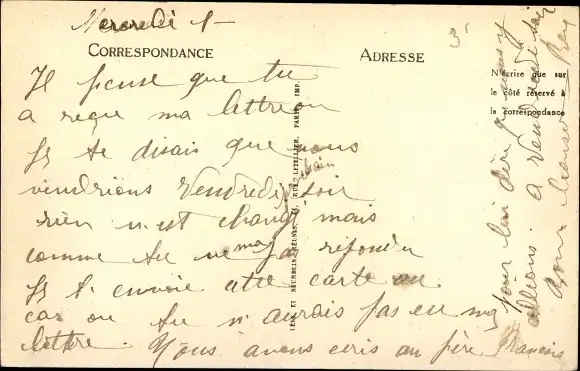 Mercredi 1-
CORRESPONDANCE
ADRESSE
N'écrire que sur
le côté réservé à
la correspondance
Je pense que tu
a reçue ma lettre ou
Je te disais que nous
viendrions Vendredi prochain soir
rien n'est changé mais
comme tu ne m'a pas répondu
Je t'envoie cette carte au
cas ou tu n'aurais pas eu ma
lettre. Nous avons écris au père François
pour lui dire que nous y
allions. a Vendredi soir
Bons baisers
LÉVY ET NEURDEIN RÉUNIS, 44, RUE LETELLIER, PARIS. IMP.